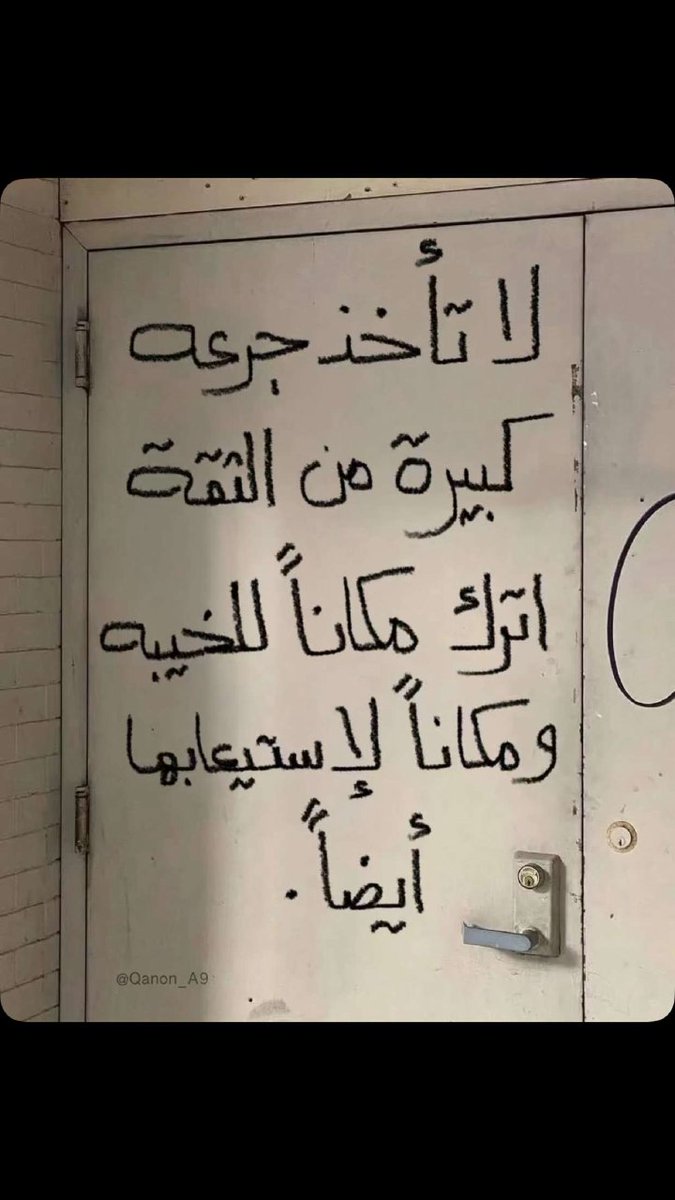 لا تأخذ جرعه
كبيرة من الثقة
اترك مكاناً للخيبه
ومكاناً لإستيعابها
أيضاً .
@Qanon_A9